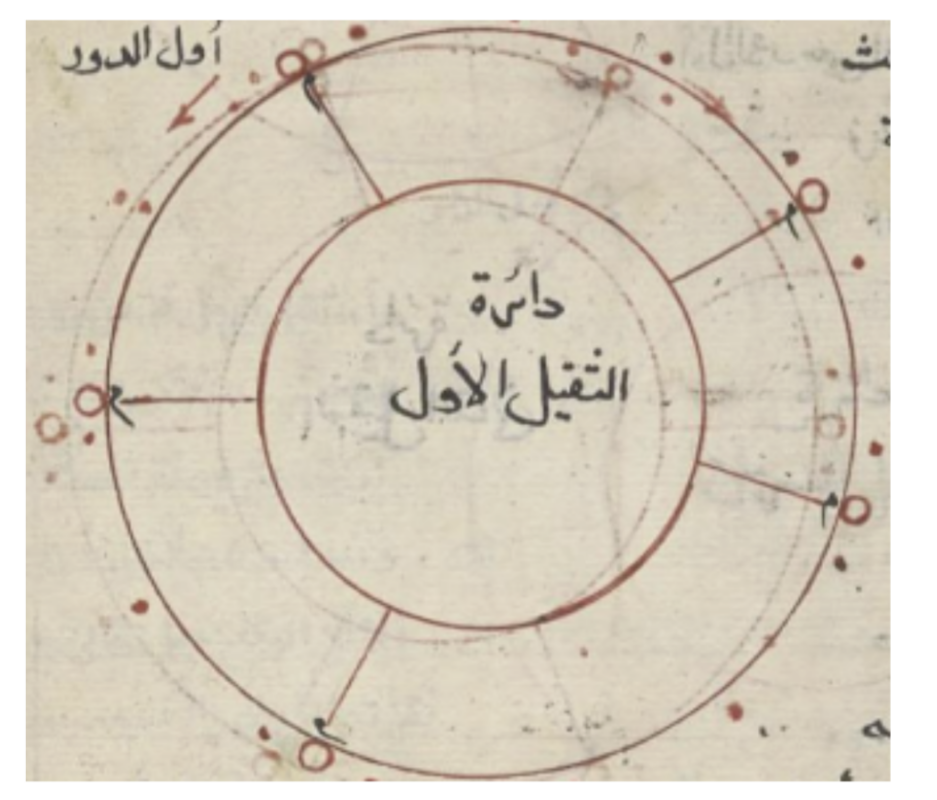 أول الدور
دائرة
الثقيل الأول
م
م
م
م
م